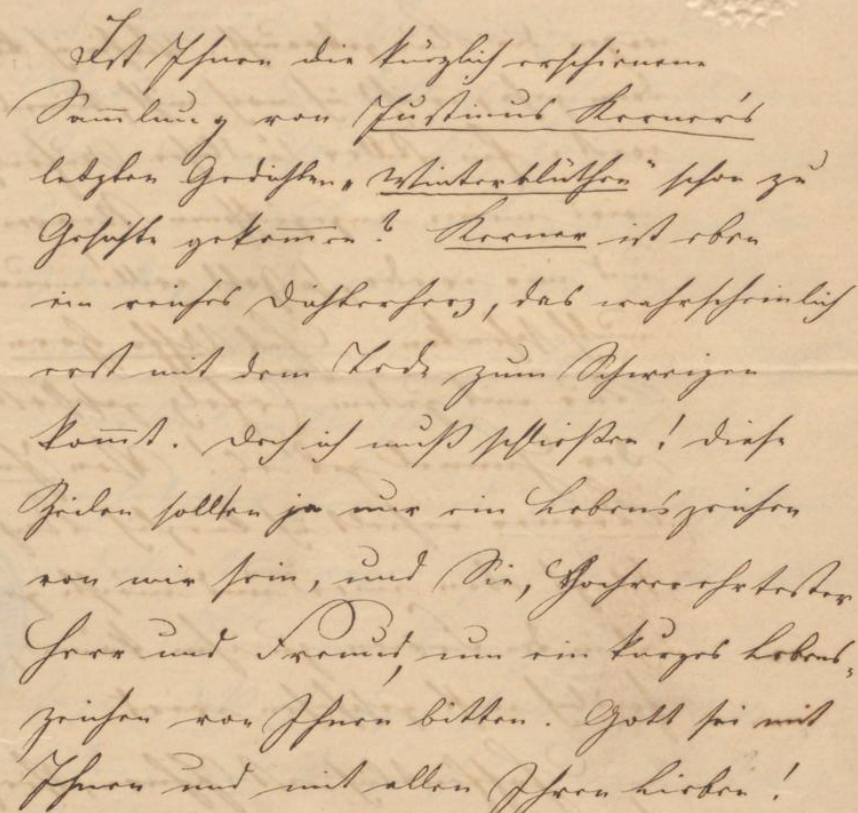 Ist Ihnen die kürzlich erschienene
Sammlung von Justinus Kerner's
letzten Gedichten „Winterblüthen" schon zu
Gesichte gekommen? Kerner ist eben
ein reiches Dichterherz, das wahrscheinlich
erst mit dem Tode zum Schweigen
kommt. Doch ich muß schließen! Diese
Zeilen sollten ja nur ein Lebenszeichen
von mir sein, und Sie, Hochverehrtester
Herr und Freund, um ein kurzes Lebens-
zeichen von Ihnen bitten. Gott sei mit
Ihnen und mit allen Ihren Lieben!